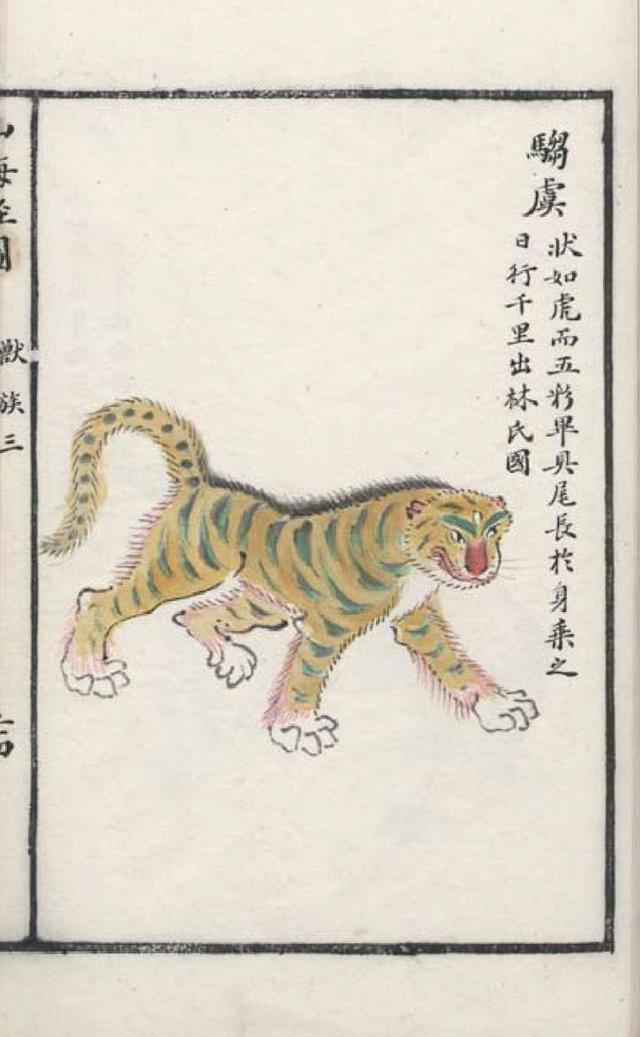 騶虞
狀如虎而五彩畢具尾長於身乘之
日行千里出林氏國
山海經圖
獸族三